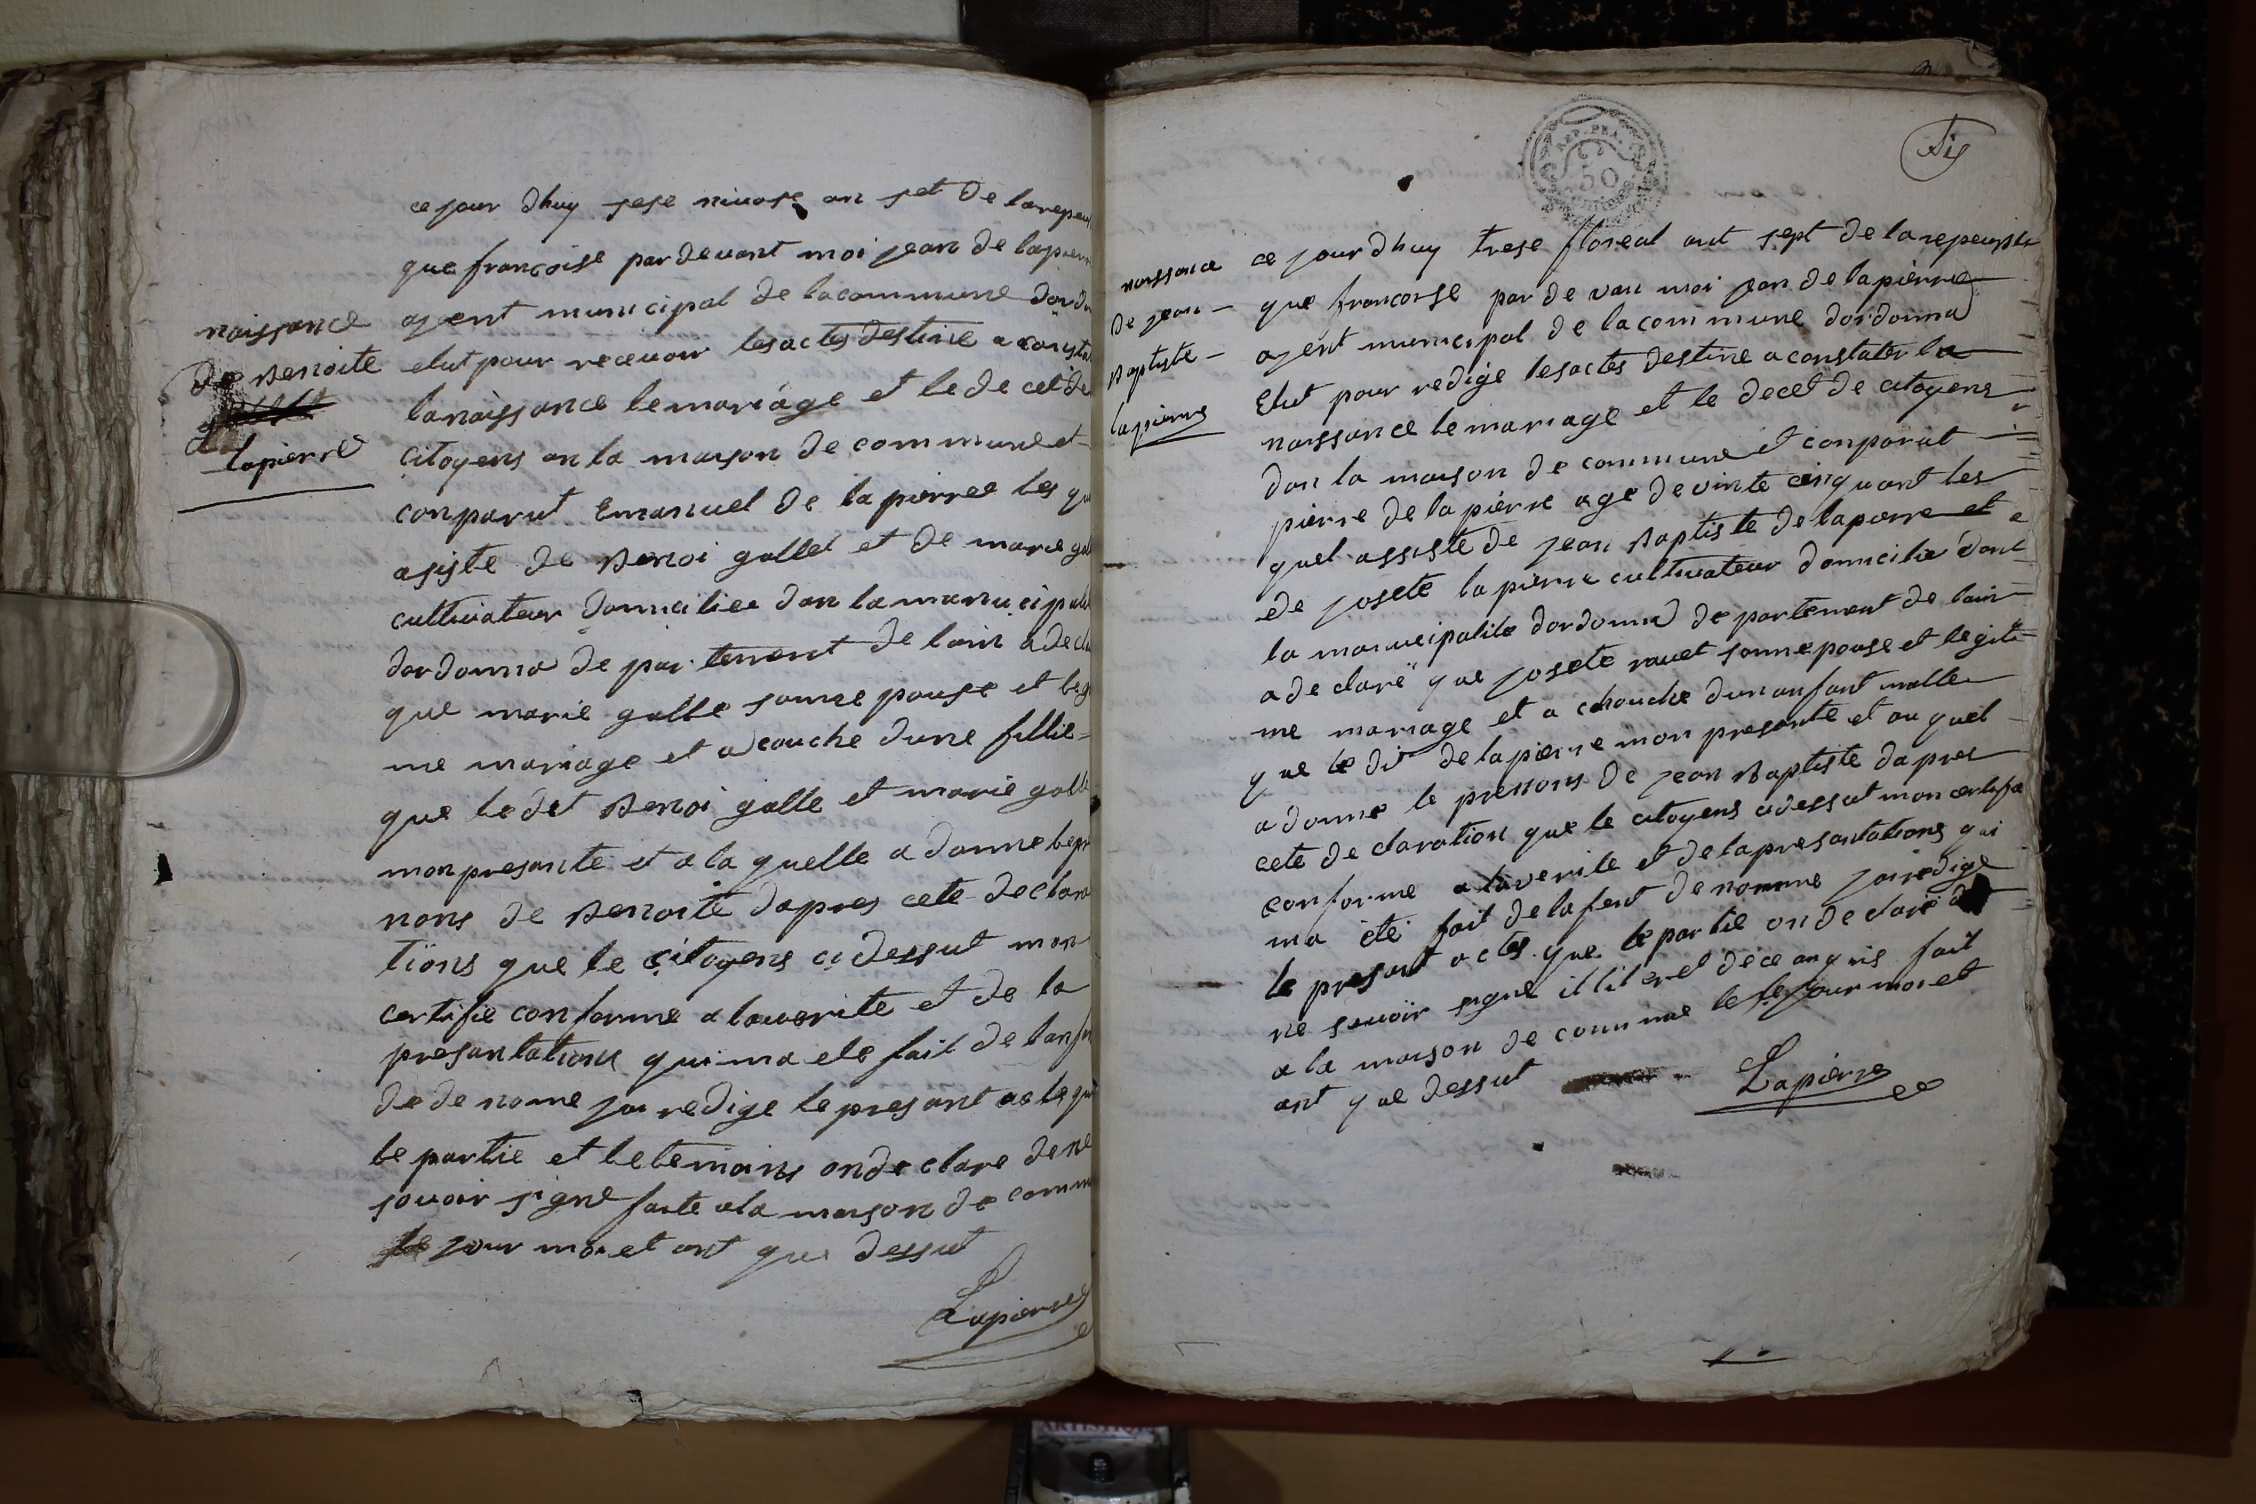 naissance
de Benoite
lapierre
ce jour dhuy sese nivose an set de larepeu
que francoise par devant moi jean de lapierr
ajent municipal de lacommune dordo
elut pour recevoir lesactes destine a consta
lanaissance lemariage et le de cet de
citoyens an la maison de commune et
conparut Emanuel de la pierre les qu
asiste de Benoi gallet et de marie gal
cultivateur domiciliee dan la manucipal
dordonna de par tement de lain a decla
que marie galle sonne pouse et leg
me mariage et a couche dune fillie
que ledet Benoi galle et marie galle
mon presante et a la quelle a donne le pr
nons de Benoite dapres cete declara
tïons que le citoyens ci dessut mon
certifie conforme a laverite et de la
presantations qui ma ete fait de lanfa
de de nome jai redige le presant acte que
le partie et le temoins on de clare de ne
sovoir signe faite ala maison de comm
jour moi et ant que dessut
Lapierre
REP. FRA.
50
naissance
de jean
Baptiste
lapierre
ce jour dhuy trese floreal ant sept de la repeubli
que francoise par de van moi jean de lapierre
ajent municipal de lacommune dordonna
Elut pour redige lesactes destine a constater la
naissance lemariage et le decet de citoyens
dan la maison de commune et conparut
pierre de la pierre age de vinte cinq u ant les
quel assiste de jean Baptiste de lapierre et
de josete lapierre cultivateur domicilie dant
la manucipalite dordonna de partement de lain
a de clarë que josete ravet sonne pouse et legiti
me mariage et a chouche dun anfant malle
que le dit de lapierre mon presante et au quel
a donne le prenons de jean Baptiste dapres
cete de claration que le citoyens cidessut mon certifie
conforme a laverite et de lapresantations qui
ma ete fait de lafent de nomme jai redige
le presant actes que le partie on de clare de
ne sovoir signe illiteret de ce anquis fait
a la maison de commune le jour moi et
ant que dessut
Lapierre